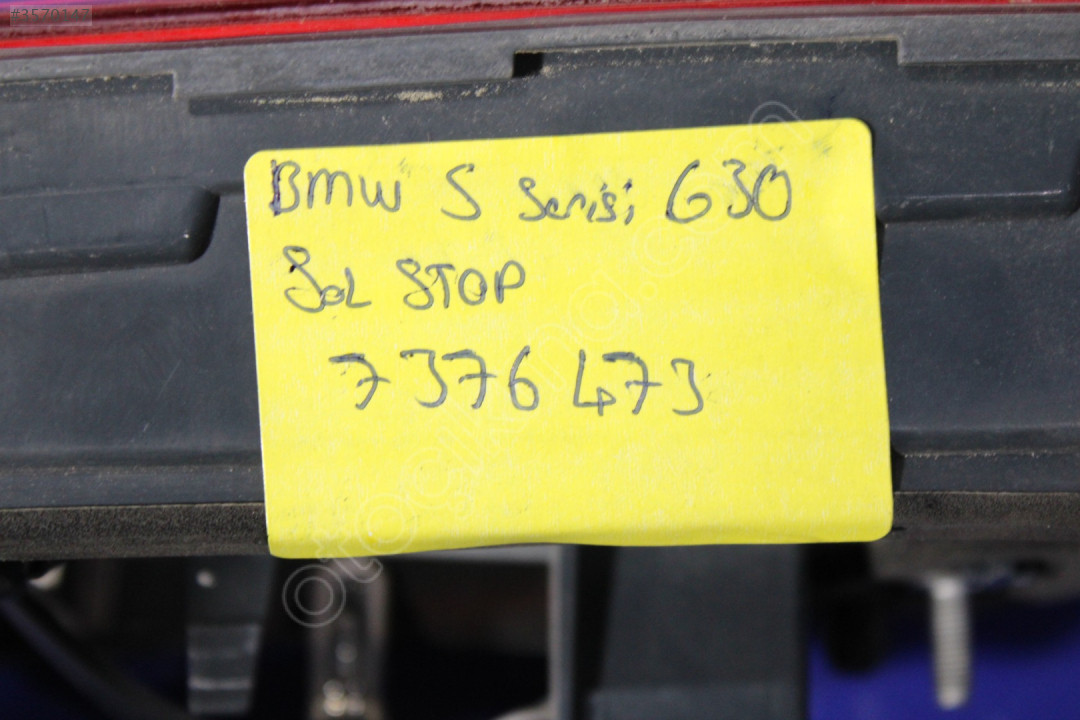 #3579147
BMW 5 Serisi G30
Sol STOP
7376473
otocikond.com